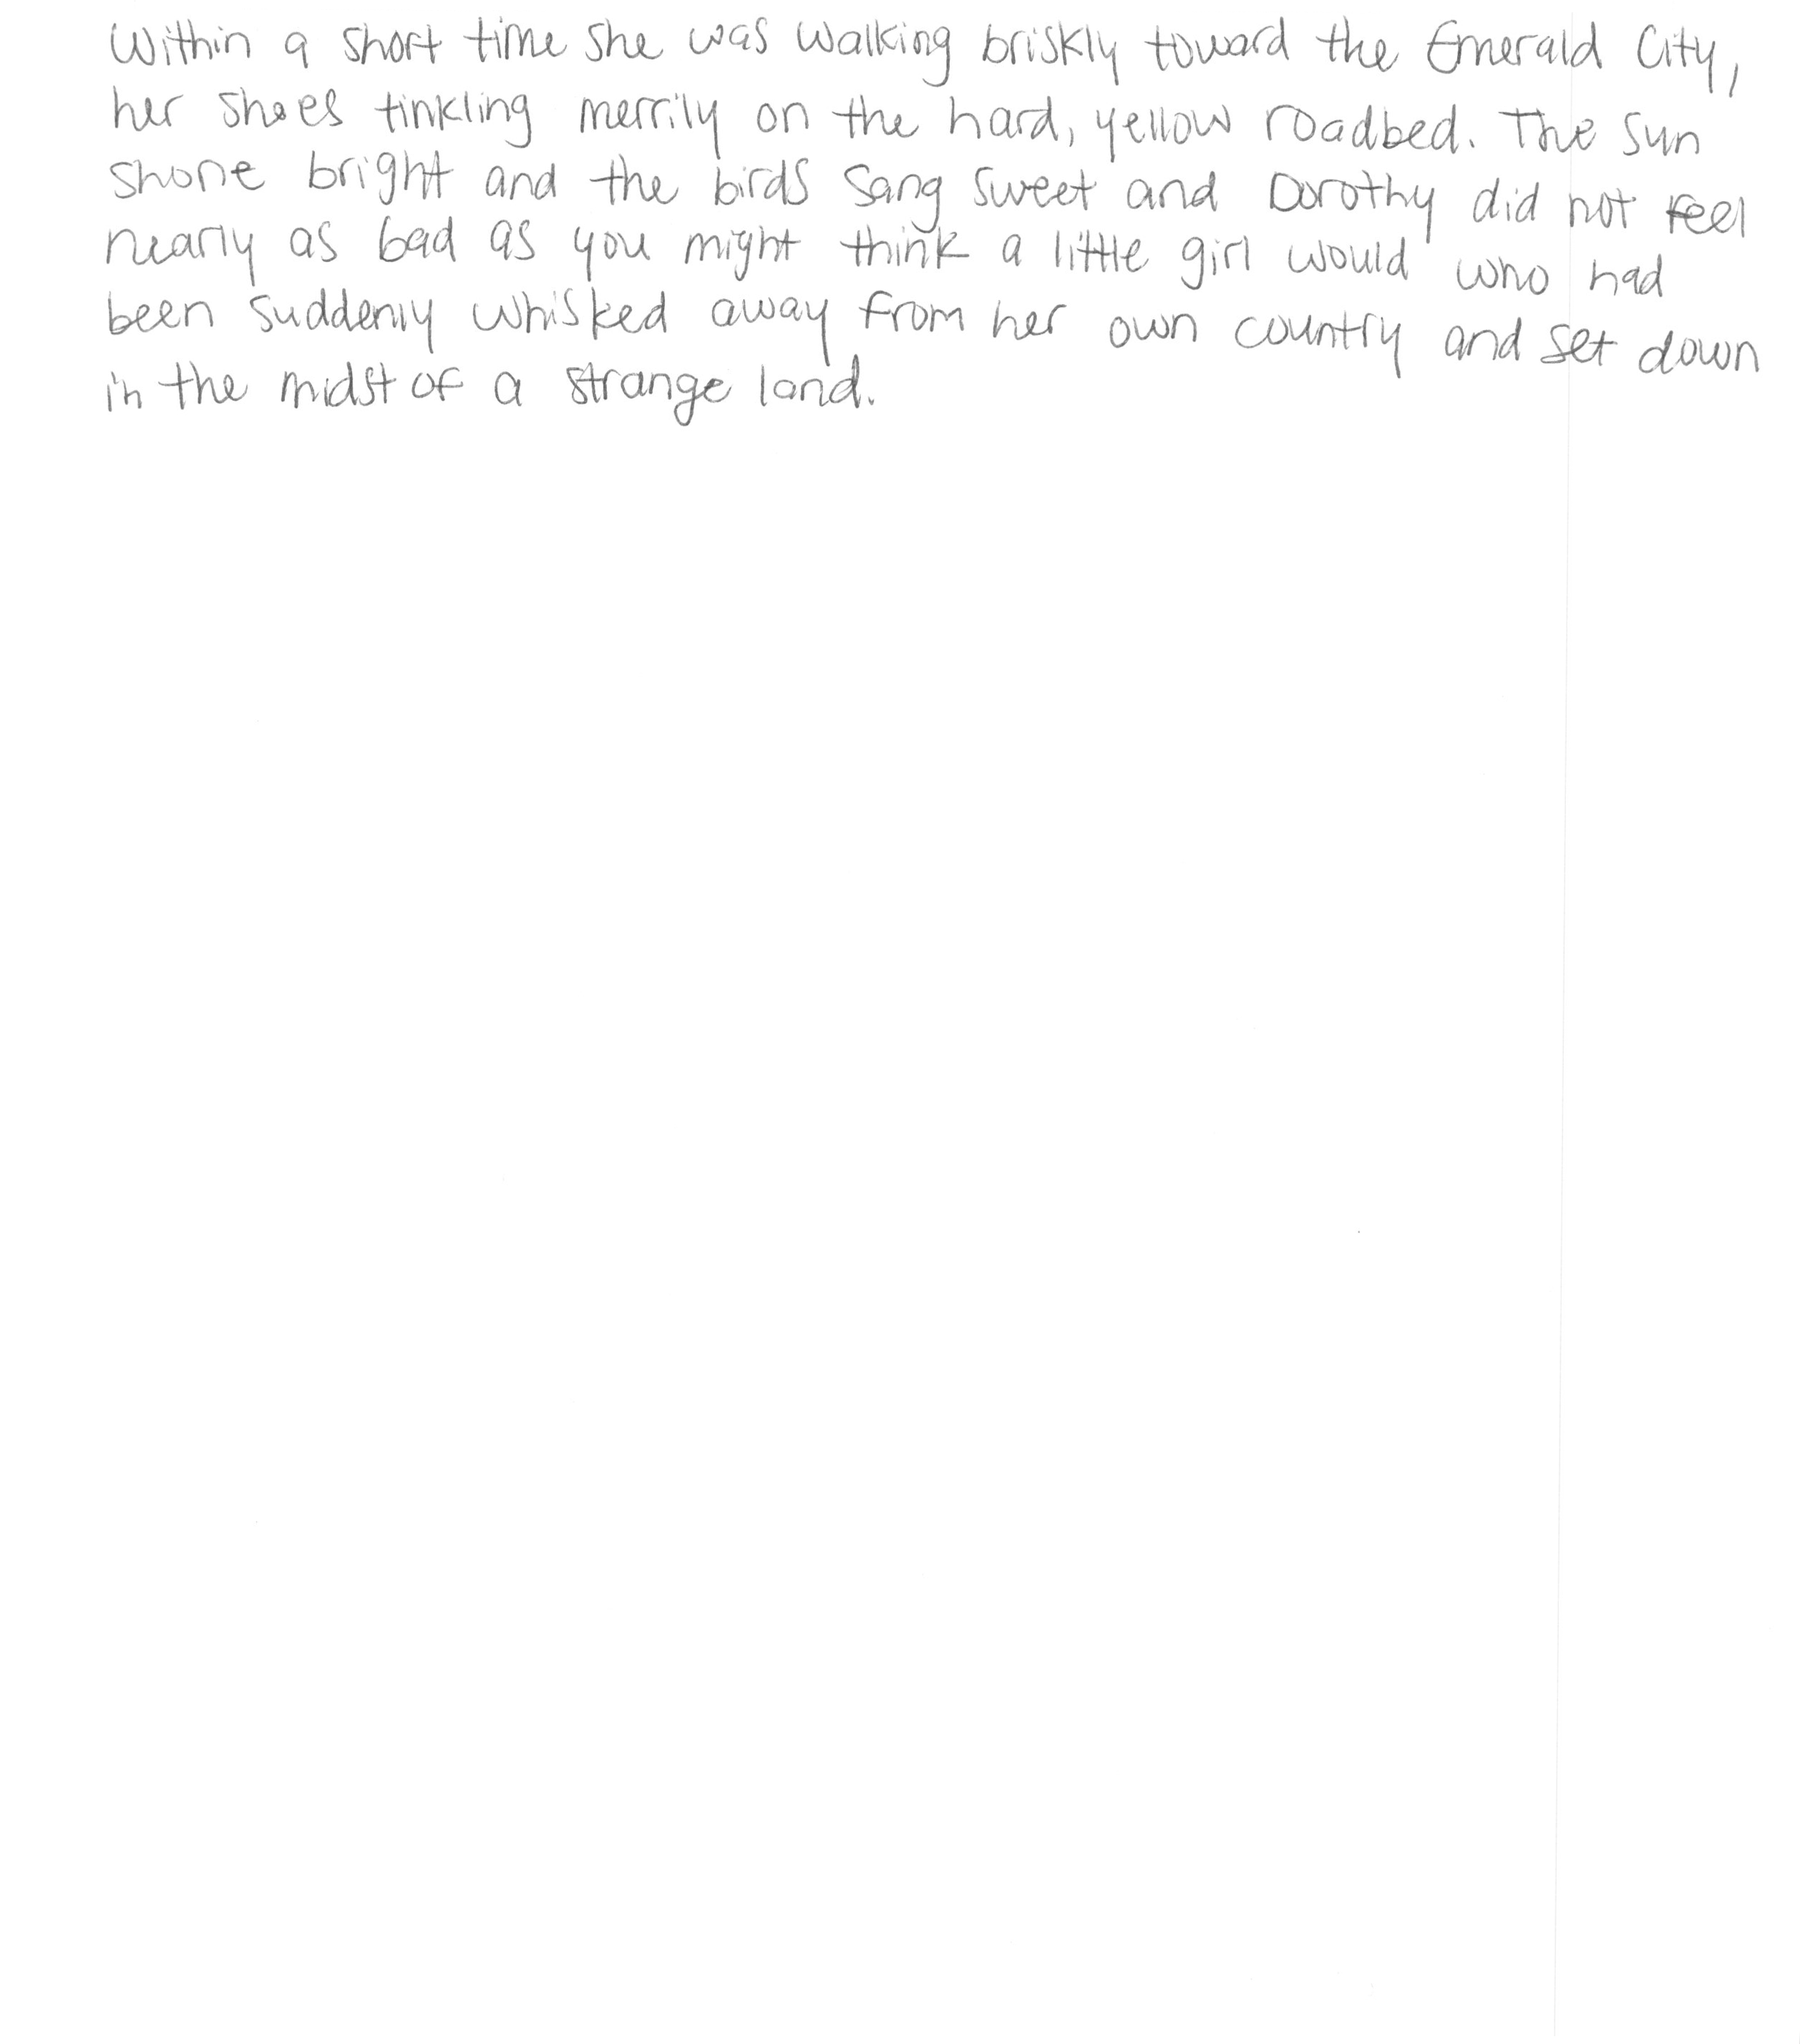 Within a short time she was walking briskly toward the Emerald City,
her shoes tinkling merrily on the hard, yellow roadbed. The sun
shone bright and the birds sang sweet and Dorothy did not feel
nearly as bad as you might think a little girl would who had
been suddenly whisked away from her own country and set down
in the midst of a strange land.